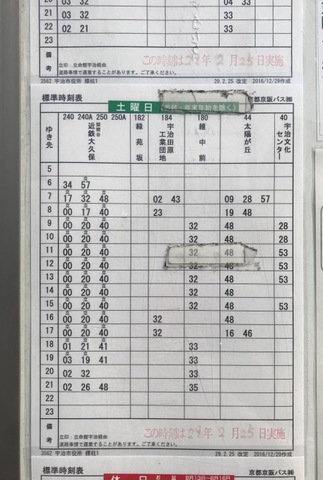 20 03 32 33
21 02 33
22
備考
立印:立命館宇治経由
道路事情で遅れることがあります。ご了承ください。
この時刻は29年2月25日実施
3562 宇治市役所 標柱1 29.2.25 改定 2016/12/29作成
標準時刻表 京都京阪バス㈱
土曜日
ゆき先
240 240A 250 250A 近鉄大久保
182 緑苑坂
184 宇治田原工業団地
180 維中前
44 太陽が丘
40 宇治文化センター
5
6 34 57
7 17 32 48 02 43 09 28 57
8 00 17 40 23 19 48
9 00 20 40 32 48 28
10 00 20 40 32 48 28
11 00 20 40 32 48 53
12 00 20 40 32 48 53
13 00 20 40 32 48 53
14 00 20 40 32 48
15 00 20 40 32 48 53
16 00 20 40 32 48
17 00 20 40 32 16 46
18 01 21 41 33
19 03 19 41 33
20 02 32 33
21 02 26 48 35
22
備考
立印:立命館宇治経由
道路事情で遅れることがあります。ご了承ください。
この時刻は29年2月25日実施
3562 宇治市役所 標柱1 29.2.25 改定 2016/12/29作成
標準時刻表 京都京阪バス㈱
休日